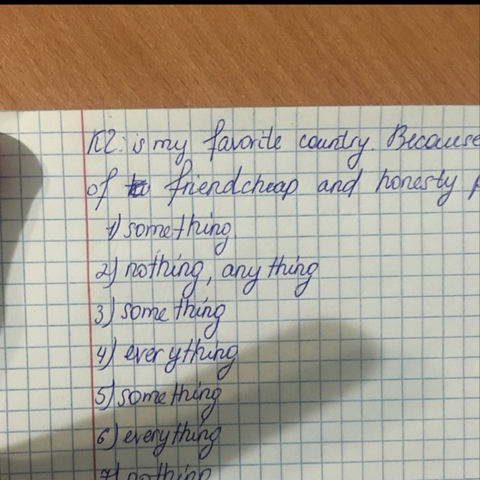 KZ: is my favorite country. Because
of friendcheap and honesty p
1) something
2) nothing, anything
3) something
4) everything
5) something
6) everything
7) nothing